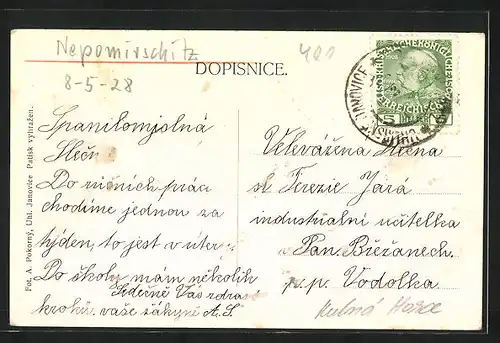 Nepomirschitz
8-5-28
401
DOPISNICE.
Fot. A. Pokorný, Uhl. Janovice Patisk vyhražen.
Spanilomyslná
Slečn
Do ručních prác
chodíme jednou za
týden, to jest v úter
Do školy mám několik
kroků. Srdečně Vás zdraví
vaše žákyně A. S.
Velevážená slečna
sl. Terezie Jará
industrialní učitelka
Pan. Břežanech.
p. p. Vodolka.
Kutná Hora
JANOVICE
5